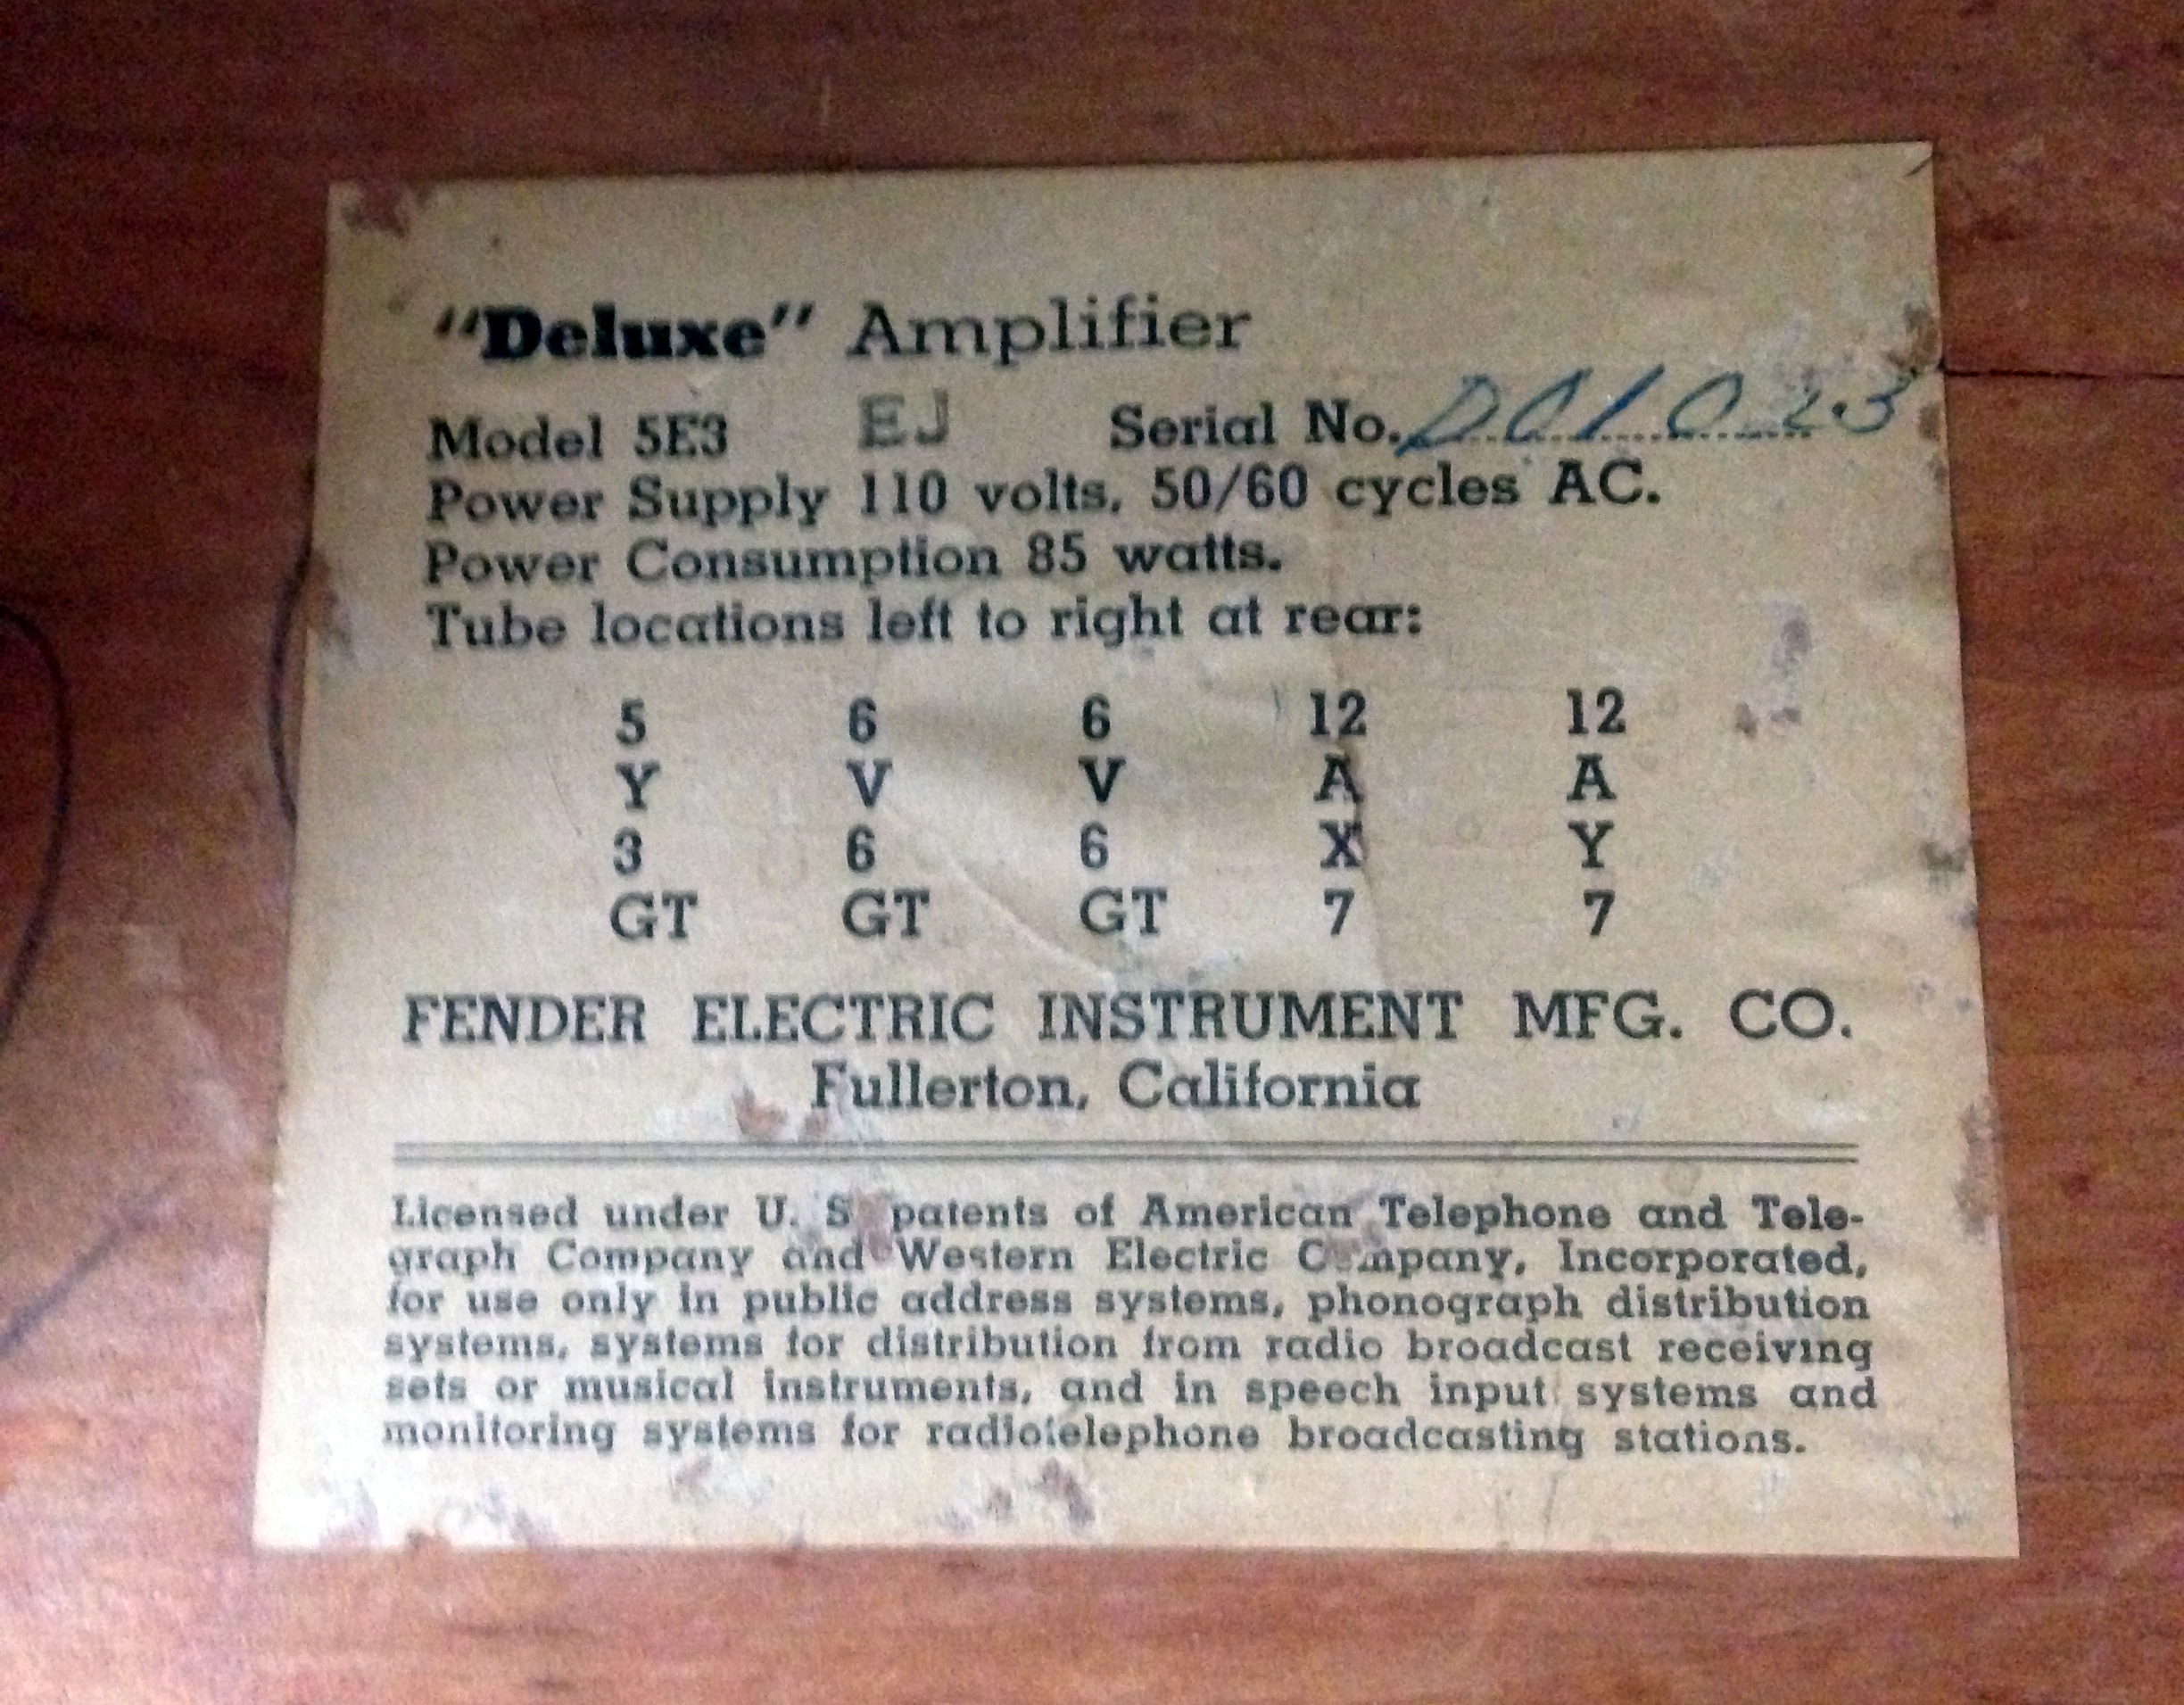 "Deluxe" Amplifier
Model 5E3 EJ Serial No. D01023
Power Supply 110 volts, 50/60 cycles AC.
Power Consumption 85 watts.
Tube locations left to right at rear:
5 6 6 12 12
Y V V A A
3 6 6 X Y
GT GT GT 7 7
FENDER ELECTRIC INSTRUMENT MFG. CO.
Fullerton, California
Licensed under U. S patents of American Telephone and Tele-
graph Company and Western Electric Company, Incorporated,
for use only in public address systems, phonograph distribution
systems, systems for distribution from radio broadcast receiving
sets or musical instruments, and in speech input systems and
monitoring systems for radiotelephone broadcasting stations.